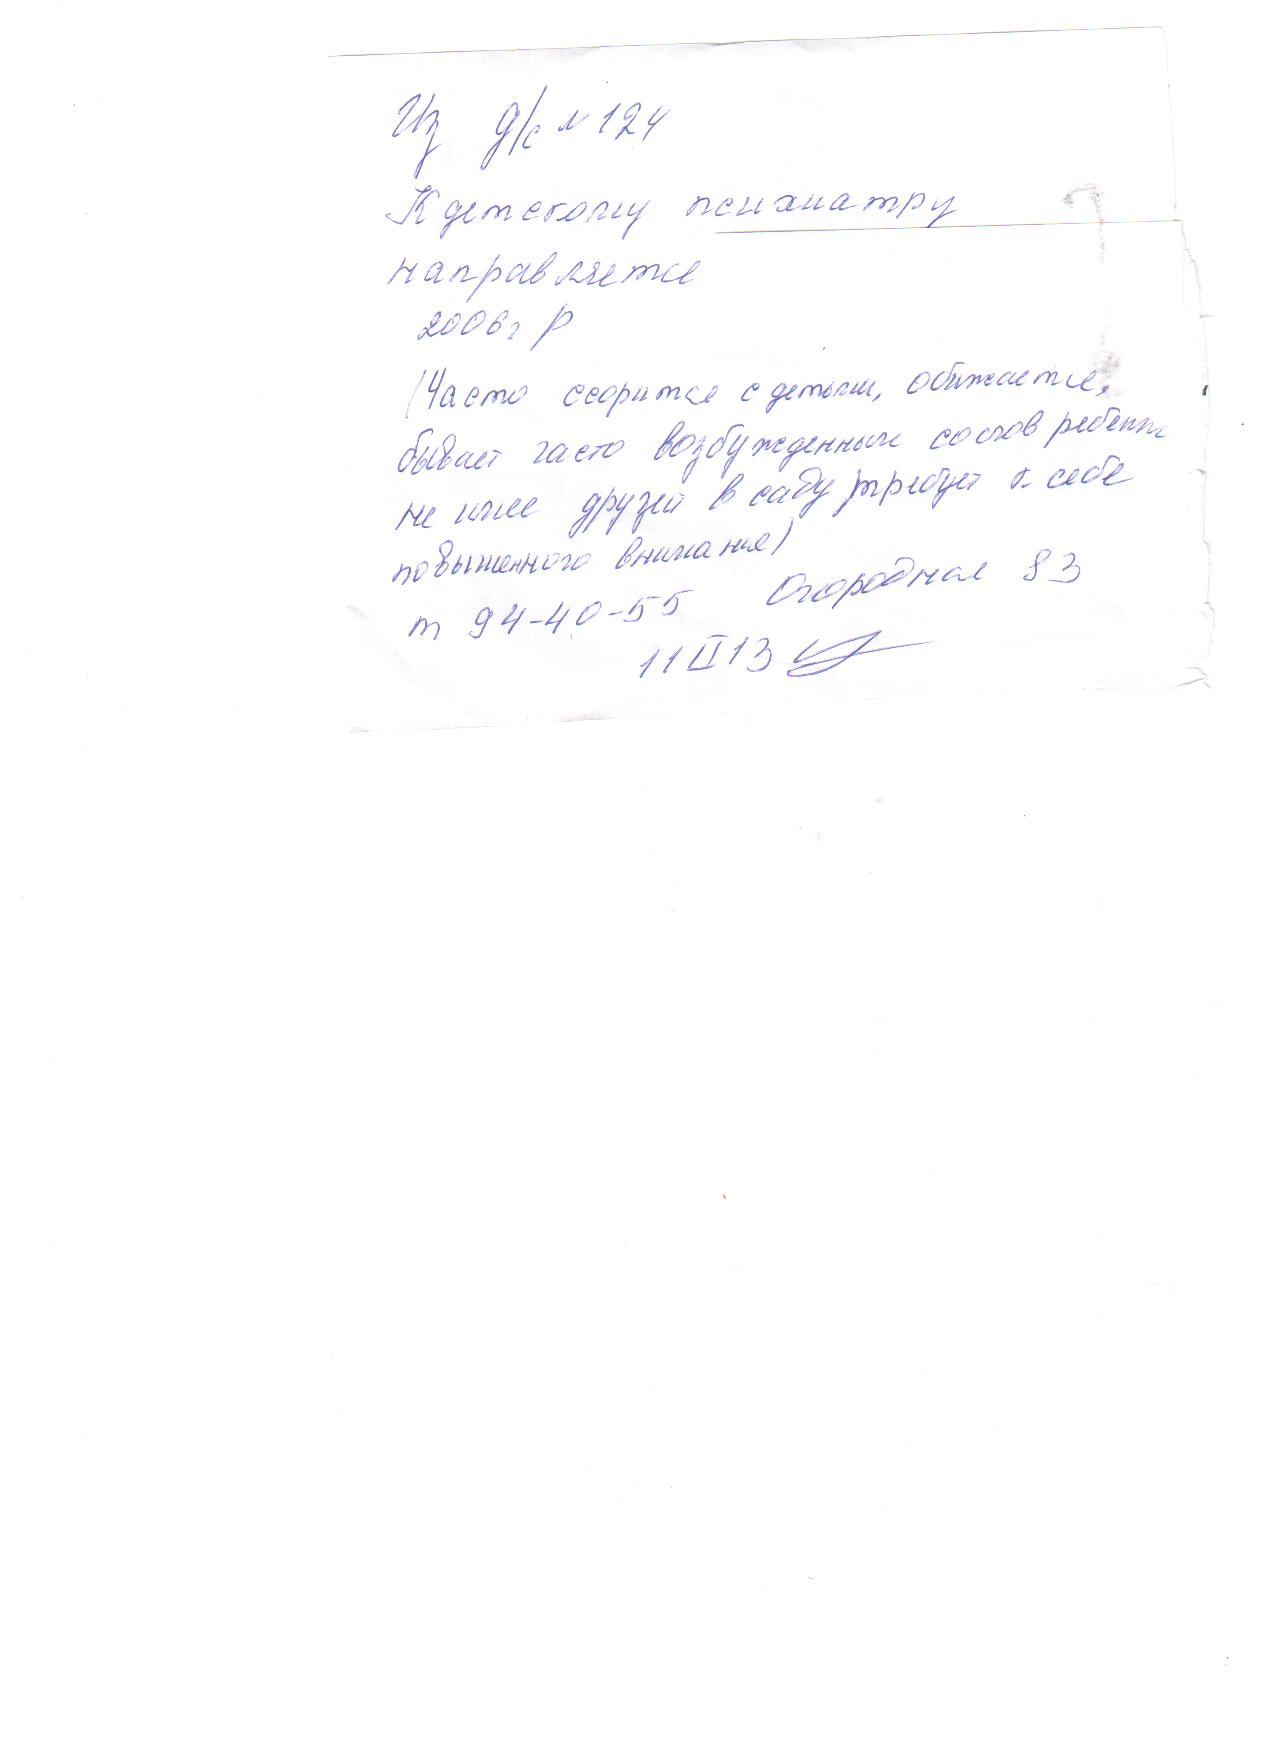 Из д/с № 124
К детскому психиатру
направляется
2006 г р
(Часто ссорится с детьми, обижается,
бывает часто возбужденным со слов ребенка
не имее друзей в саду, требует к себе
повышенного внимания)
т 94-40-55 Огородная 83
11 II 13